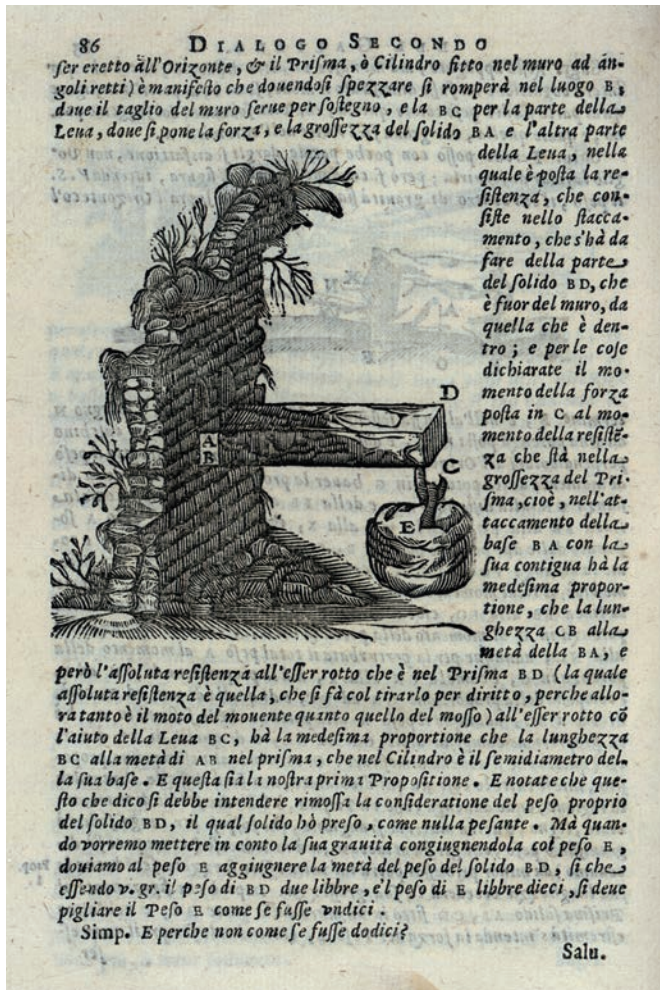 86 DIALOGO SECONDO
ſer eretto all'Orizonte, & il Priſma, ò Cilindro fitto nel muro ad an-
goli retti) è manifeſto che douendoſi ſpezzare ſi romperà nel luogo B,
doue il taglio del muro ſerue per ſoſtegno, e la BC per la parte della
Leua, doue ſi pone la forza, e la groſſezza del ſolido BA e l'altra parte
della Leua, nella
quale è poſta la re-
ſiſtenza, che con-
ſiſte nello ſtacca-
mento, che s'hà da
fare della parte
del ſolido BD, che
è fuor del muro, da
quella che è den-
tro; e per le coſe
dichiarate il mo-
mento della forza
poſta in C al mo-
mento della reſiſtẽ-
za che ſtà nella
groſſezza del Pri-
ſma, cioè, nell'at-
taccamento della
baſe BA con la
ſua contigua hà la
medeſima propor-
tione, che la lun-
ghezza CB alla
metà della BA, e
D
A
B
C
E
però l'aſſoluta reſiſtenza all'eſſer rotto che è nel Priſma BD (la quale
aſſoluta reſiſtenza è quella, che ſi fà col tirarlo per diritto, perche allo-
ra tanto è il moto del mouente quanto quello del moſſo) all'eſſer rotto cõ
l'aiuto della Leua BC, hà la medeſima proportione che la lunghezza
BC alla metà di AB nel priſma, che nel Cilindro è il ſemidiametro del-
la ſua baſe. E queſta ſia la noſtra prima Propoſitione. E notate che que-
ſto che dico ſi debbe intendere rimoſſa la conſideratione del peſo proprio
del ſolido BD, il qual ſolido hò preſo, come nulla peſante. Mà quan-
do vorremo mettere in conto la ſua grauità congiugnendola col peſo E,
douiamo al peſo E aggiugnere la metà del peſo del ſolido BD, ſi che
eſſendo v. gr. il peſo di BD due libbre, e'l peſo di E libbre dieci, ſi deue
pigliare il Peſo E come ſe fuſſe vndici.
Simp. E perche non come ſe fuſſe dodici?
Salu.